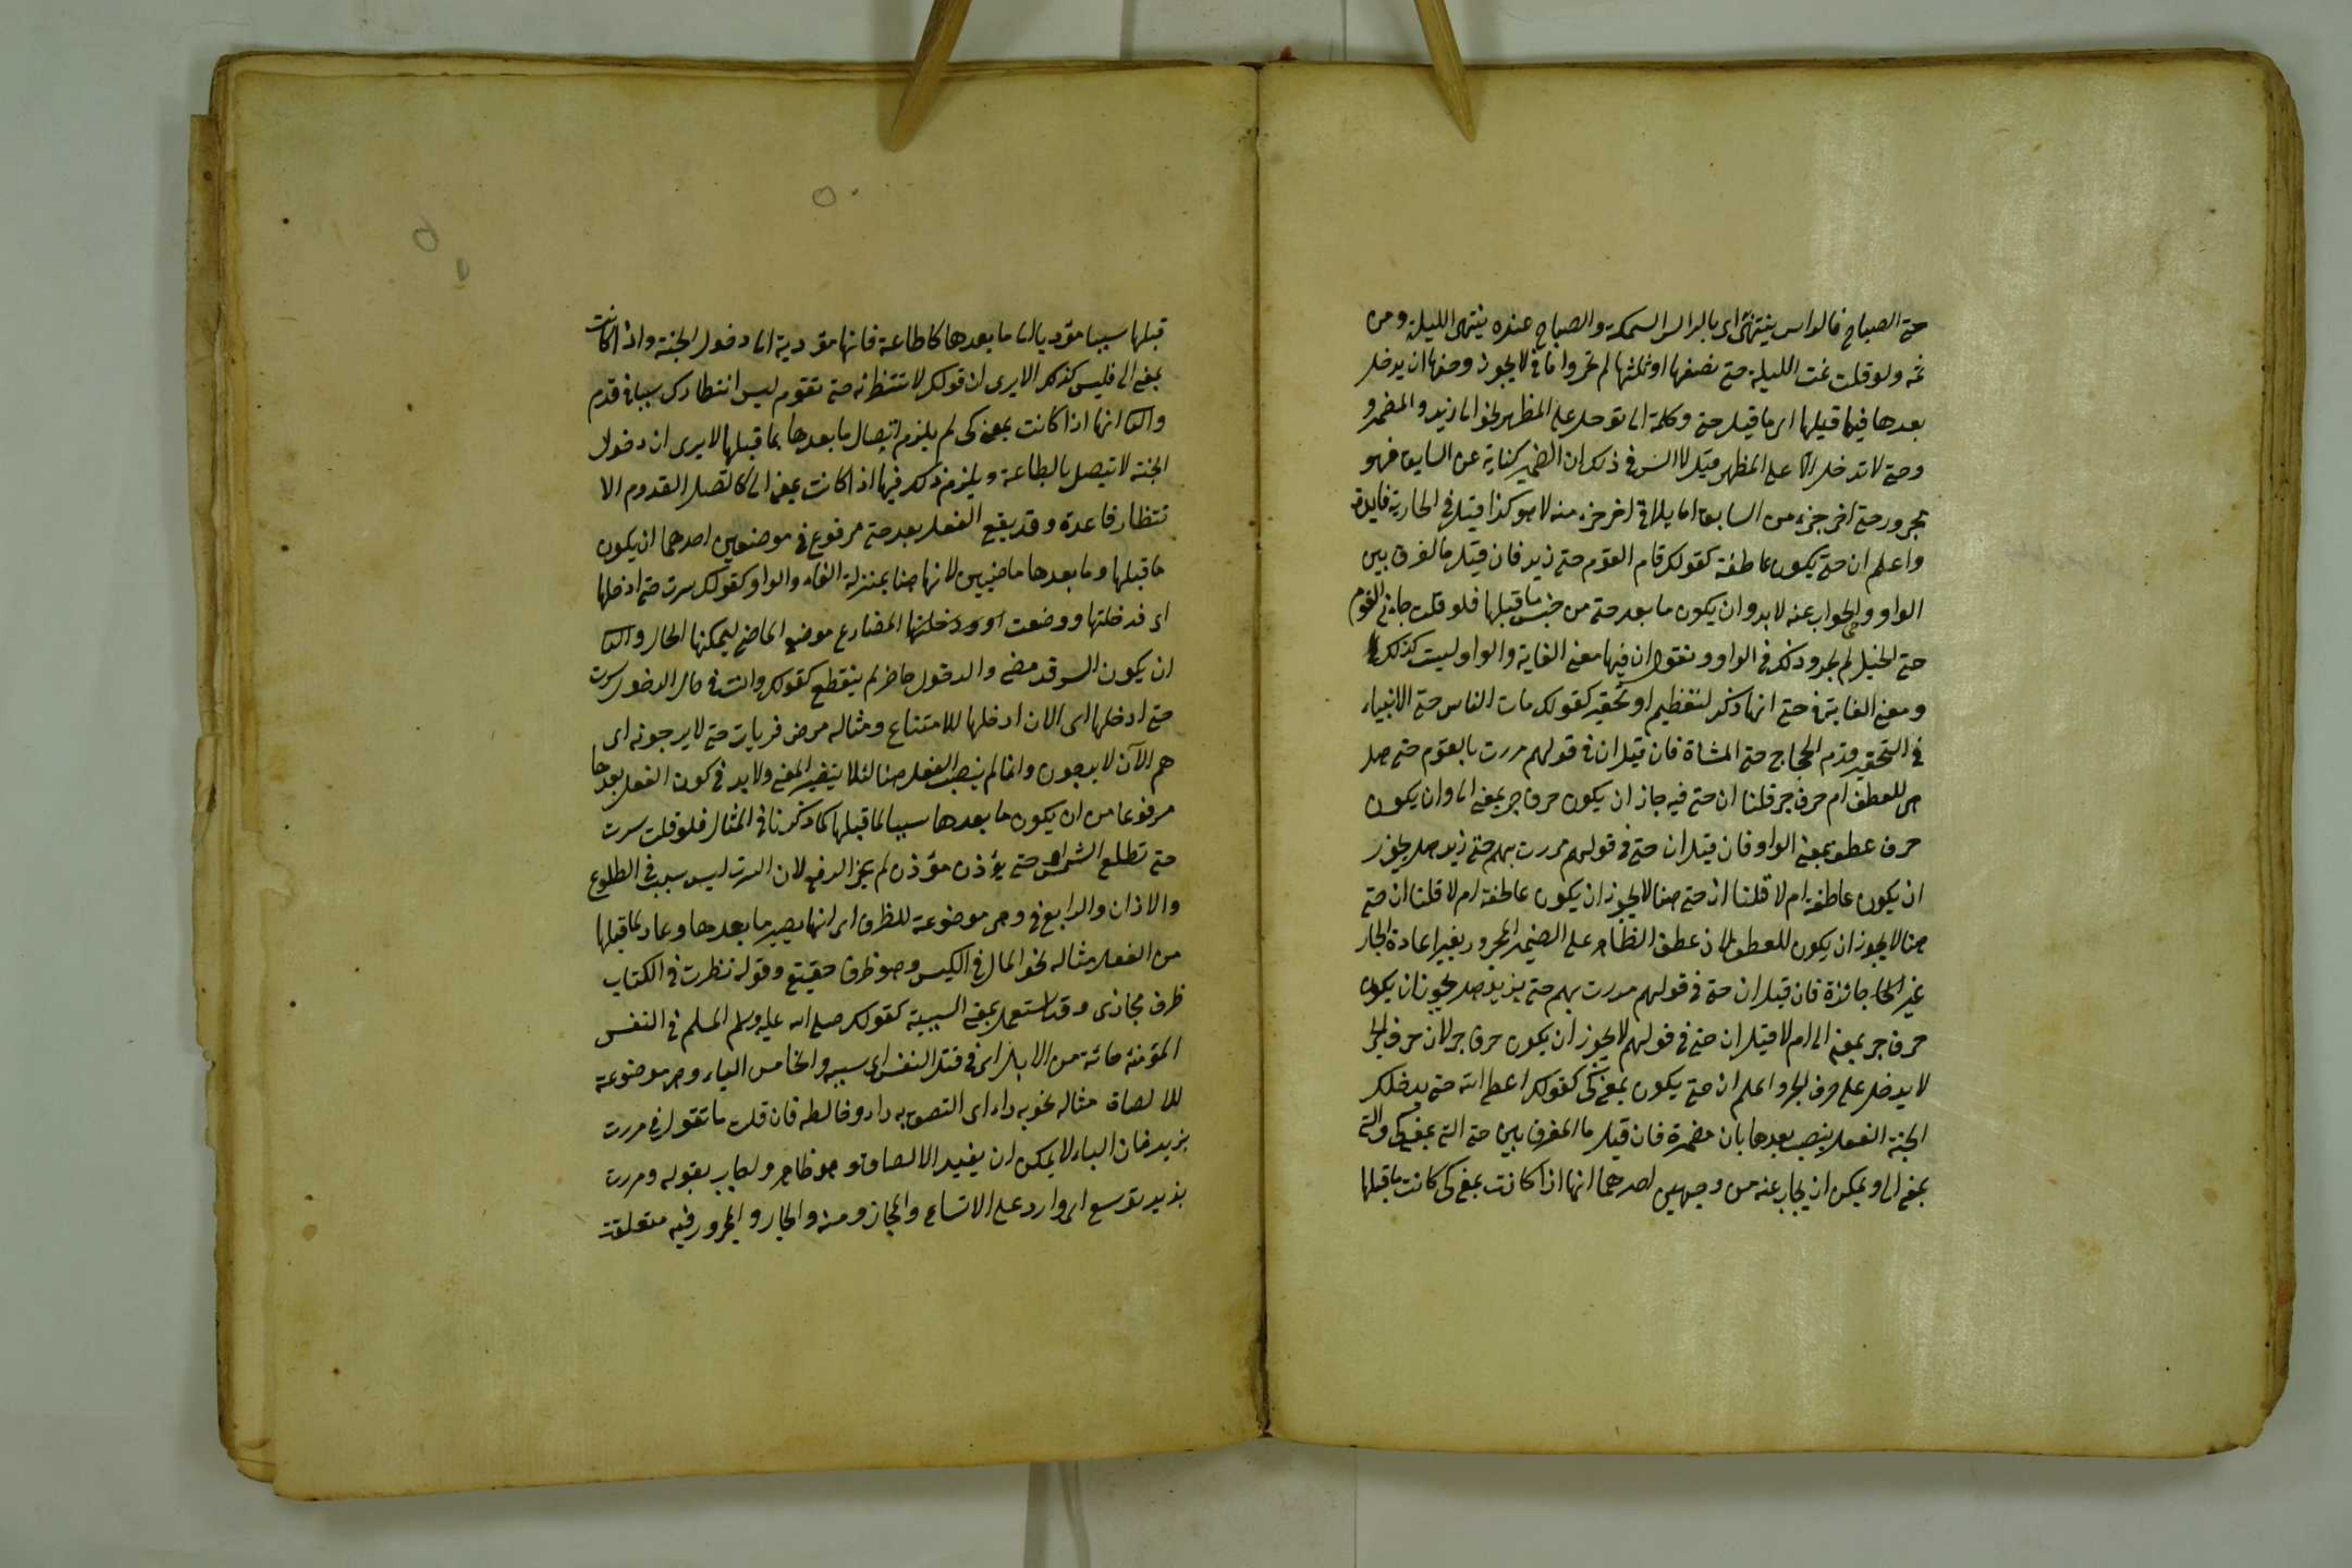 حتى الصباح فالراس ينتهى اى بالراس السمكة والصباح عنده ينتهى الليلة ومن
ثمه ولو قلت نمت الليلة حتى نصفها او ثلثها لم تجز واما في لا يجوز ومنها ان يدخل
بعدها فيما قبلها اى ما قبل حتى وكلمة الى تدخل على المظهر نحو الى زيد والمضمر و
وحتى لا تدخل الا على المظهر قيل لا السر في ذلك ان الضمير كناية عن السابق فهو
مجرور حتى اخر جزء من السابق او ما يلاقي اخر جزء منه لا هو كذا قيل في الجاربة فايدة
واعلم ان حتى يكون عاطفة كقولك قام القوم حتى زيد فان قيل ما الفرق بين
الواو وحتى والجواب عنه لا بد وان يكون ما بعد حتى من جنس ما قبلها فلو قلت جاءني القوم
حتى الخيل لم يجز وذلك في الواو ونقول ان فيها معنى الغاية والواو ليست كذلك
ومعنى الغاية في حتى انها تذكر لتعظيم او تحقير كقولك مات الناس حتى الانبياء
في التحقير قدم الحجاج حتى المشاة فان قيل ان في قولهم مررت بالقوم حتى هل
هى للعطف ام حرف جر قلنا ان حتى فيه جاز ان يكون حرف جر بمعنى الى وان يكون
حرف عطف بمعنى الواو فان قيل ان حتى في قولهم مررت بهم حتى زيد هل يجوز
ان يكون عاطفة ام لا قلنا ان حتى هنا لا يجوز ان يكون عاطفة ام لا قلنا ان حتى
هنا لا يجوز ان يكون للعطف لان عطف الظاهر على الضمير المجرور بغير اعادة الجار
غير الجار جائزة فان قيل ان حتى في قولهم مررت بهم حتى بزيد هل يجوز ان يكون
حرف جر بمعنى الى ام لا قيل ان حتى في قولهم لا يجوز ان يكون حرف جر لان حرف الجر
لا يدخل على حرف الجر واعلم ان حتى يكون بمعنى كى كقولك اعطع الله حتى يدخلك
الجنة الفعل ينصب بعدها بان مضمرة فان قيل ما الفرق بين حتى التي بمعنى كى والتي
بمعنى الى ويمكن ان يجاب عنه من وجهين احدهما انها اذا كانت بمعنى كى كانت ما قبلها
قبلها سببا مؤديا الى ما بعدها كالطاعة فانها مؤدية الى دخول الجنة واذا كانت
بمعنى الى فليس كذلك الا يرى ان قولك لا تنتظرنه حتى تقوم ليس انتظارك سببا في قدم
والثا انها اذا كانت بمعنى كى لم يلزم اتصال ما بعدها بما قبلها الا يرى ان دخول
الجنة لا تيصل بالطاعة ويلزم ذلك فيها اذا كانت بمعنى الى كاتصل القدوم الا
نتظار قاعدة وقد يقع الفعل بعد حتى مرفوع في موضعين احدهما ان يكون
ما قبلها وما بعدها ماضيين لانها هنا بمنزلة الفاء والواو كقولك سرت حتى ادخلها
اى فدخلتها ووضعت او ودخلتها المضارع موضع الماضى ليمكنها الحال والثا
ان يكون السير قد مضى والدخول حاضر لم ينقطع كقولك وانت في حال الدخول سرت
حتى ادخلها اى الان ادخلها للامتناع ومثاله مرض فربات حتى لا يرجونه اى
هم الآن لا يرجون وانما لم ينصب الفعل هنا لئلا يتغير المعنى ولا بد في كون الفعل بعدها
مرفوعا من ان يكون ما بعدها سببا لما قبلها كما ذكرنا في المثال فلو قلت سرت
حتى تطلع الشمس او حتى يؤذن مؤذن لم يجز الرفع لان السرت ليس سبب في الطلوع
والاذان والرابع في وهى موضوعة للظرف اى انها يصير ما بعدها وعاء لما قبلها
من الفعل مثاله نحو المال في الكيس وهو ظرف حقيقى وقوله نظرت في الكتاب
ظرف مجازى وقد استعمل بمعنى السببية كقولك صلى الله عليه وسلم المسلم في النفس
المؤمنة مائة من الابل اى في قتل النفس اى سببه والخامس الباء وهى موضوعة
للالصاق مثاله نحو به داء اى التصق به داء وخالطه فان قلت ما تقول في مررت
بزيد فان الباء لا يمكن ان يفيد الالصاق وهو ظاهر ولجاب بقوله ومررت
بزيد توسع اى وارد على الاتساع والمجاز ومنه والجار والمجرور فيه متعلقة